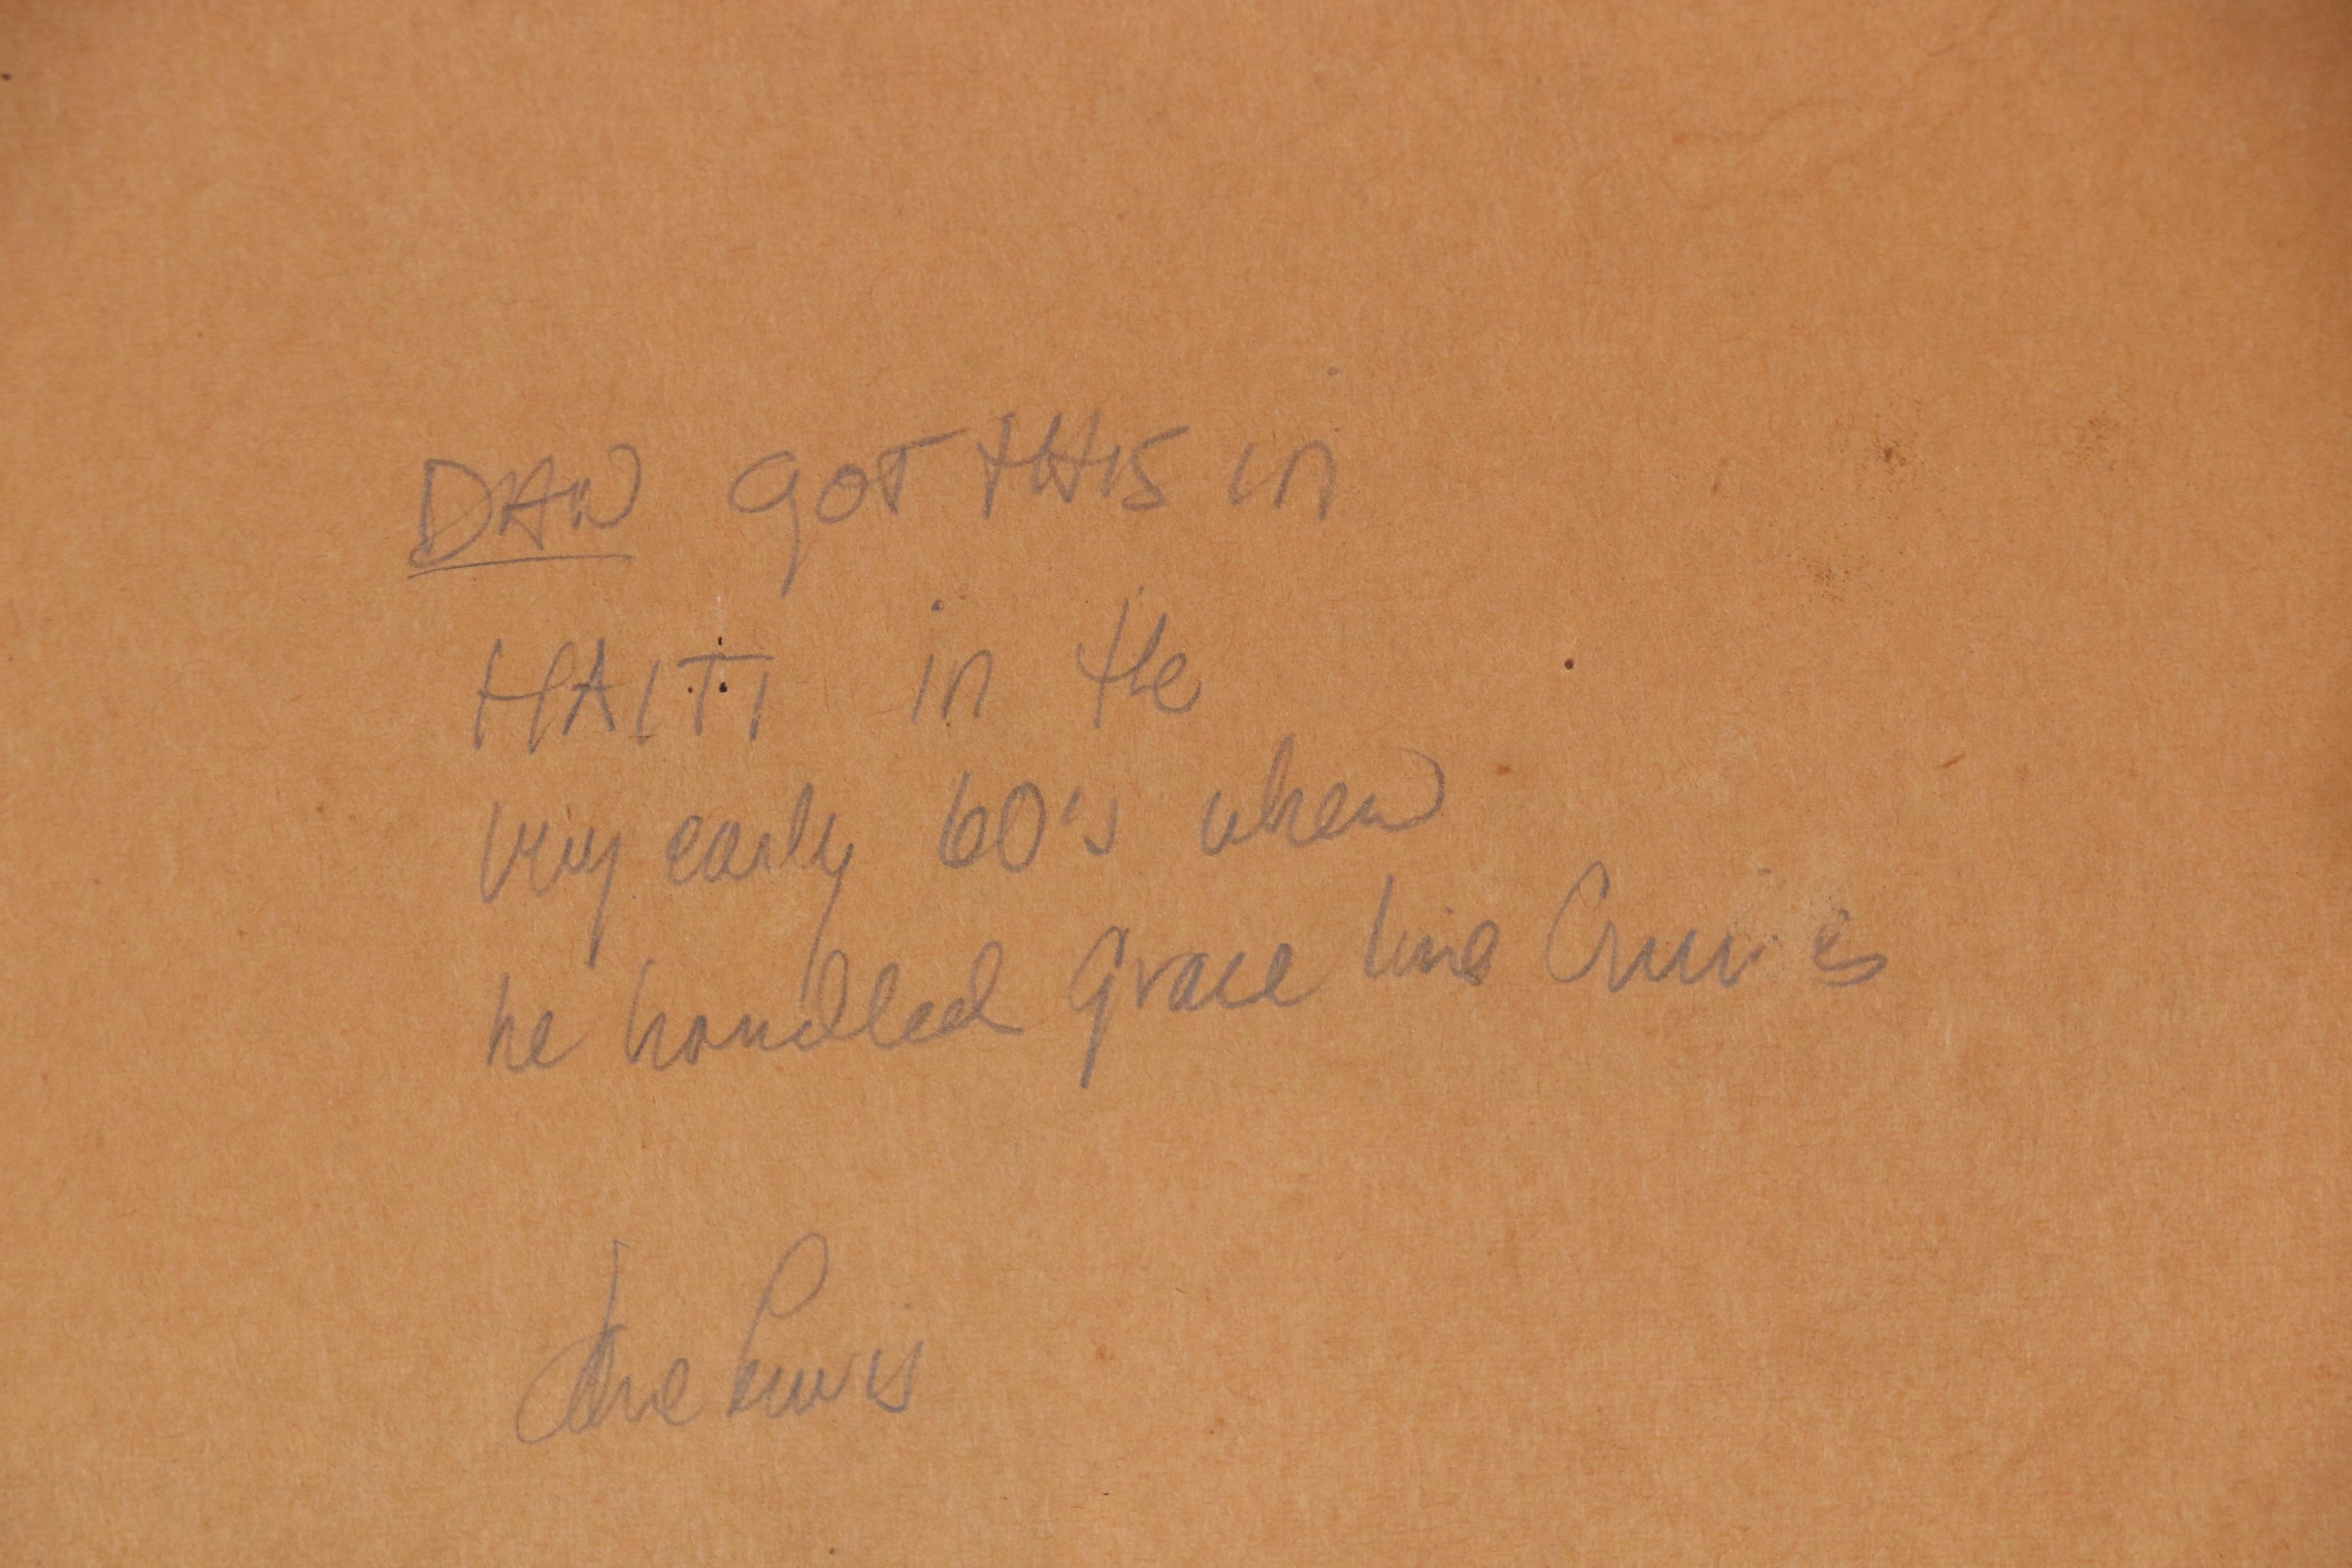 DAN got THIS in
HAITI in the
very early 60's when
he handled Grace Line Cruises
Lewis